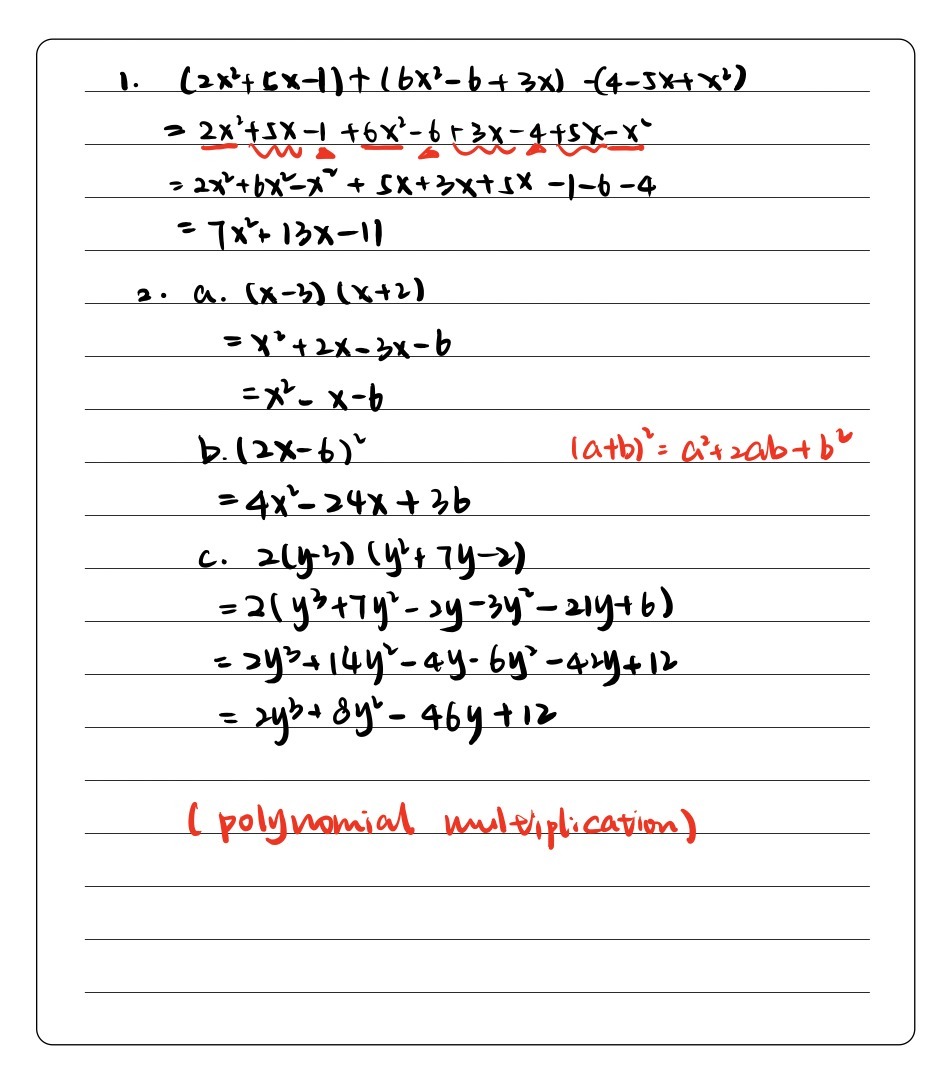 1. (2x²+5x-1)+(6x²-6+3x)-(4-5x+x²)
= 2x²+5x-1+6x²-6+3x-4+5x-x²
= 2x²+6x²-x²+5x+3x+5x-1-6-4
= 7x²+13x-11
2. a. (x-3)(x+2)
= x²+2x-3x-6
= x²-x-6
b. (2x-6)² (a+b)²= a²+2ab+b²
= 4x²-24x+36
c. 2(y-3)(y²+7y-2)
= 2(y³+7y²-2y-3y²-21y+6)
= 2y³+14y²-4y-6y²-42y+12
= 2y³+8y²-46y+12
(polynomial multiplication)